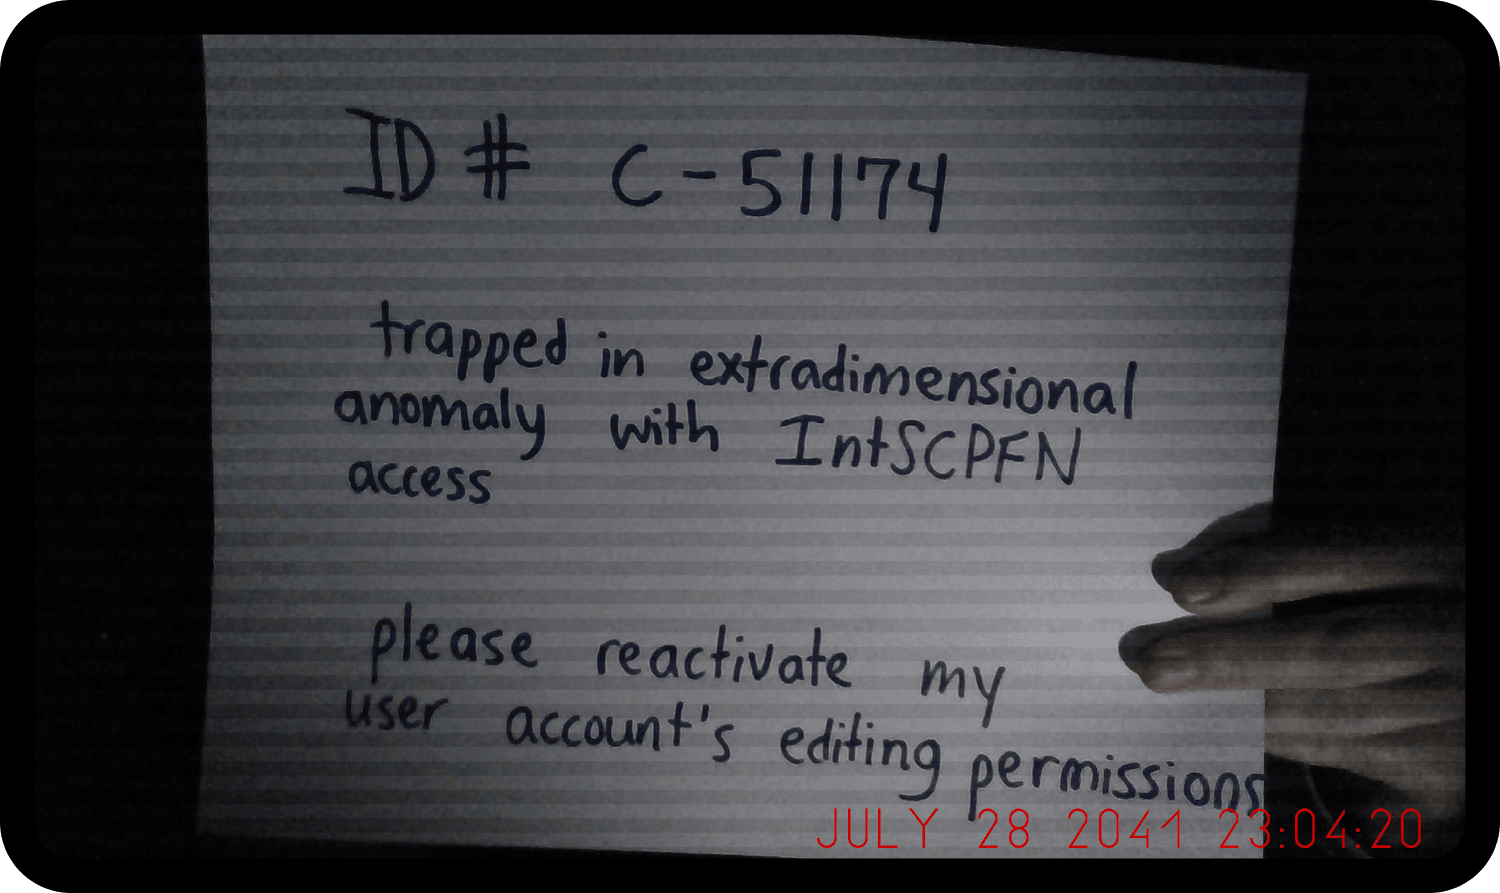 ID # C-51174
trapped in extradimensional
anomaly with IntSCPFN
access
please reactivate my
user account's editing permissions
JULY 28 2041 23:04:20